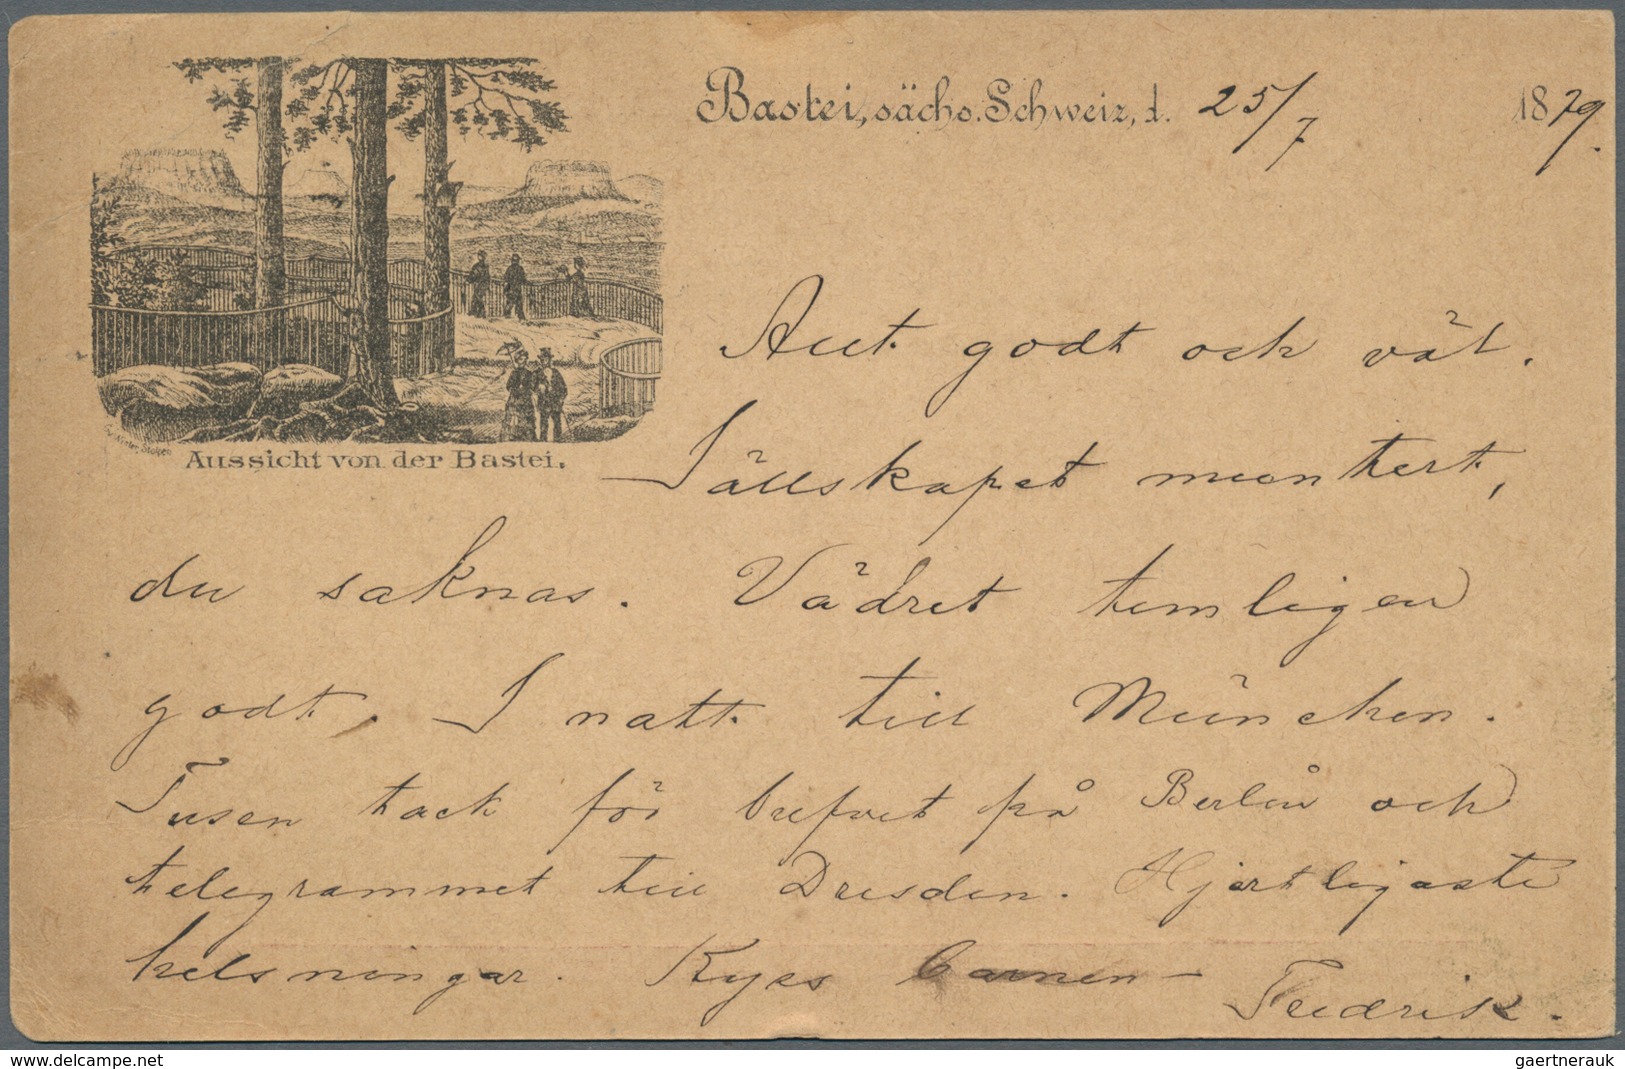 Bastei, sächs. Schweiz, d. 25/7 1879.
Aussicht von der Bastei.
Allt godt och väl.
Sällskapet muntert,
du saknas. Vädret temligen
godt. I natt till München.
Tusen tack för brefvet på Berlin och
telegrammet till Dresden. Hjertligaste
helsningar. Kyss barnen –
Fredrik.
delcampe.net
gaertnerauk